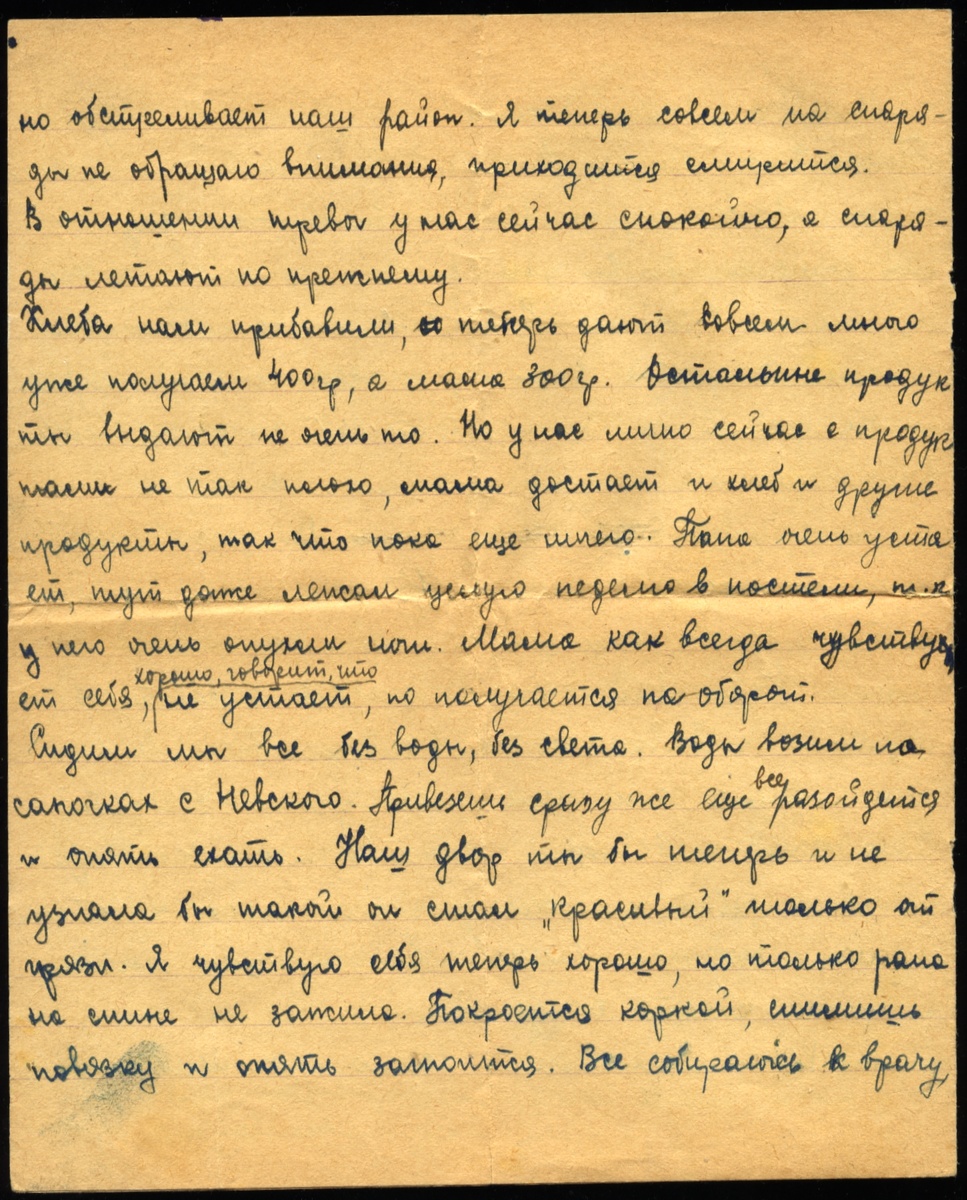 но обстреливает наш район. Я теперь совсем на снаря-
ды не обращаю внимания, приходится смирится.
В отношении тревог у нас сейчас спокойно, а снаря-
ды летают по прежнему.
Хлеба нам прибавили, теперь дают совсем много
уже получаем 400гр, а мама 300гр. Остальные продук
ты выдают не очень то. Но у нас лично сейчас с продук
тами не так плохо, мама достает и хлеб и другие
продукты, так что пока еще ничего. Папа очень уста
ет, тут даже лежал целую неделю в постели, т.к
у него очень опухли ноги. Мама как всегда чувству
ет себя, хорошо, говорит, что не устает, но получается на оборот.
Сидим мы все без воды, без света. Воды возим на
саночках с Невского. Привезешь сразу же еще все разойдется
и опять ехать. Наш двор ты бы теперь и не
узнала бы такой он стал „красивый" только от
грязи. Я чувствую себя теперь хорошо, но только рана
на спине не зажила. Покроется коркой, снимишь
повязку и опять загноится. Все собираюсь к врачу